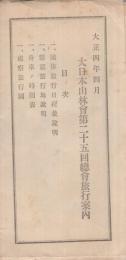 大正四年四月
大日本山林會第二十五回總會旅行案内
目次
一、視察旅行日程並說明
一、視察旅行地說明
一、汽車ノ時間表
一、視察旅行圖